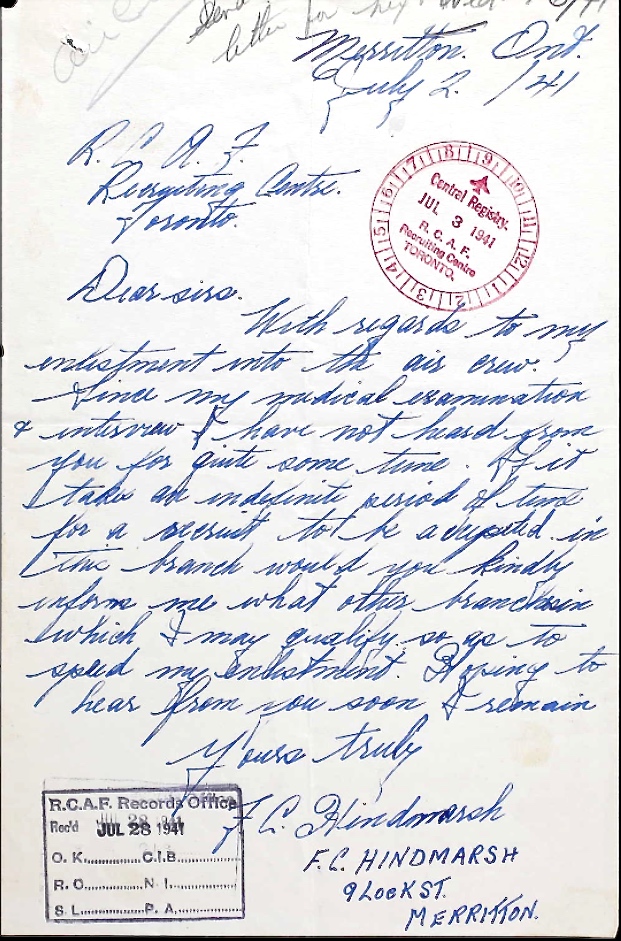 Air Crew
Send
letter for next week
Merritton. Ont.
July 2. /41
R. C. A. F.
Recruiting Centre.
Toronto.
Central Registry.
JUL 3 1941
R. C. A. F.
Recruiting Centre
TORONTO.
Dear sirs.
With regards to my
enlistment into the air crew.
Since my medical examination
& interview I have not heard from
you for quite some time. If it
takes an indefinite period of time
for a recruit to be accepted in
this branch would you kindly
inform me what other branches in
which I may qualify so as to
speed my enlistment. Hoping to
hear from you soon I remain
Yours truly
F C. Hindmarsh
F.C. HINDMARSH
9 LOCK ST.
MERRITTON.
R.C.A.F. Records Office
Rec'd JUL 28 1941
O. K. C.I.B.
R. O. N. I.
S. L. P. A.